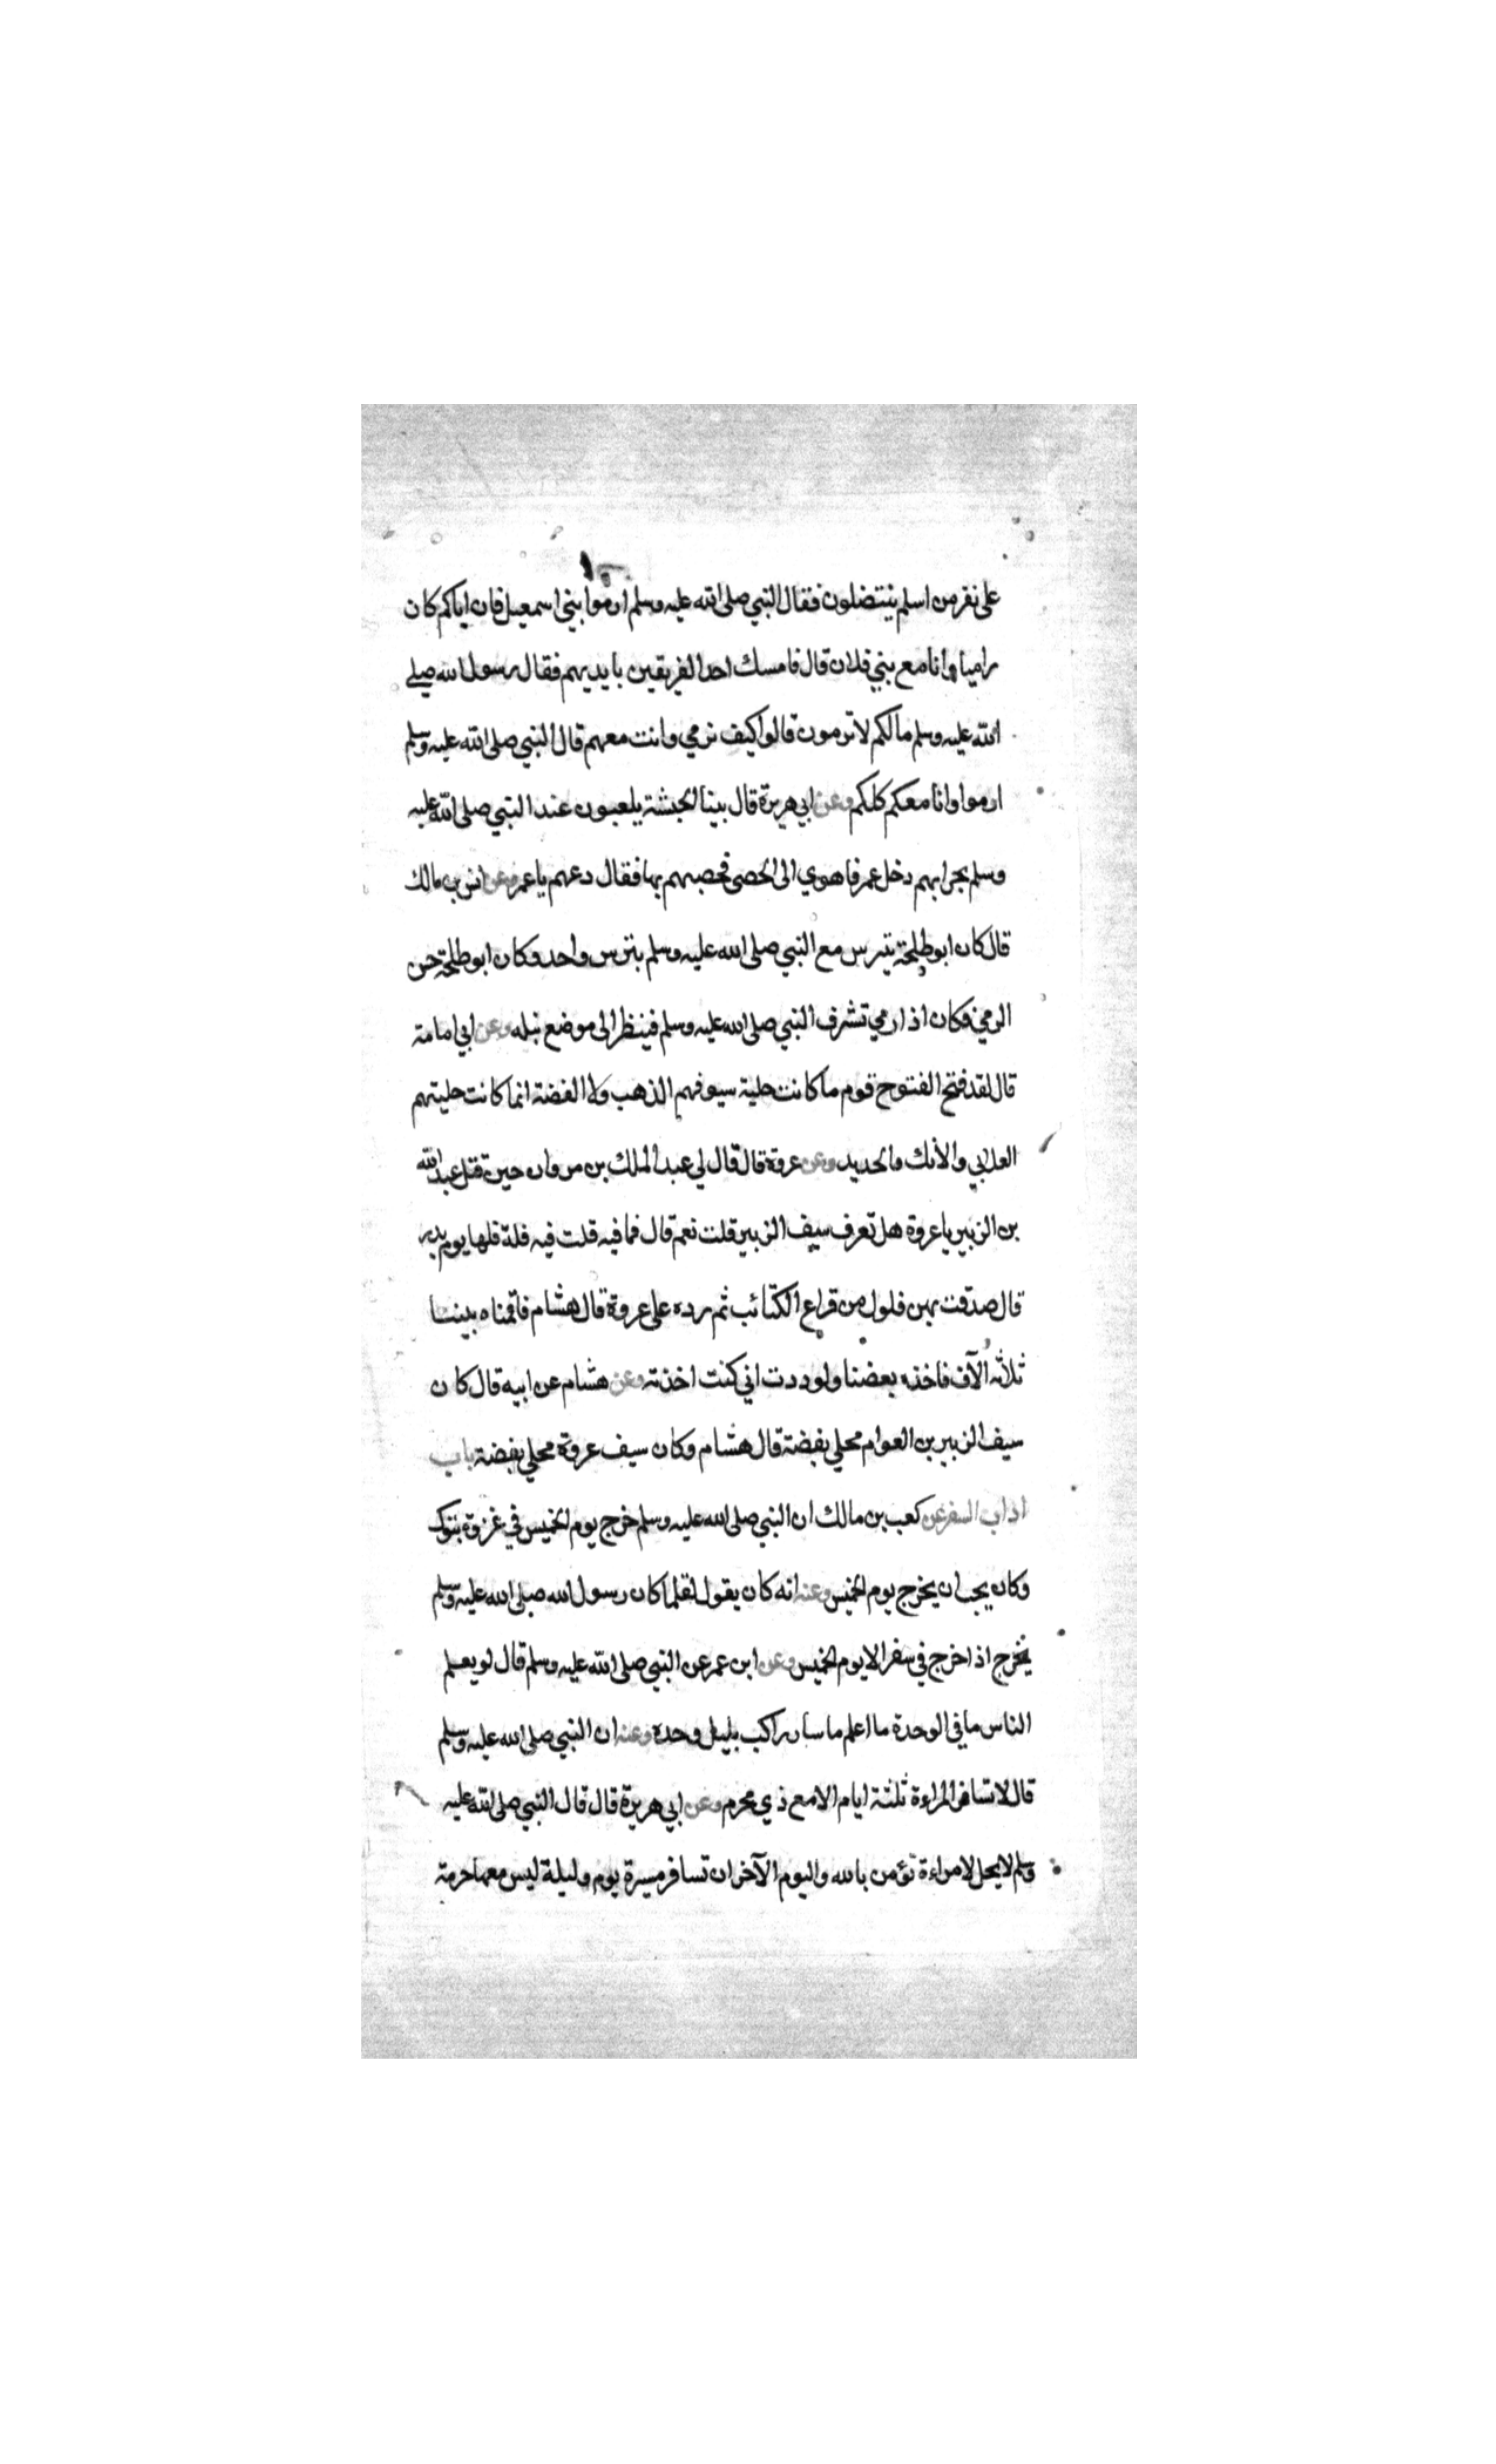 على نفر من اسلم ينتضلون فقال النبي صلى الله عليه وسلم ارموا بني اسمعيل فان اباكم كان
راميا وانا مع بني فلان قال فامسك احد الفريقين بايديهم فقال رسول الله صلى
الله عليه وسلم مالكم لا ترمون قالوا كيف نرمي وانت معهم قال النبي صلى الله عليه وسلم
ارموا وانا معكم كلكم وعن ابي هريرة قال بينا الحبشة يلعبون عند النبي صلى الله عليه
وسلم بحرابهم دخل عمر فاهوي الى الحصى فحصبهم بها فقال دعهم يا عمر وعن انس بن مالك
قال كان ابو طلحة يترس مع النبي صلى الله عليه وسلم بترس واحد وكان ابو طلحة حسن
الرمي فكان اذا رمي تشرف النبي صلى الله عليه وسلم فينظر الى موضع نبله وعن ابي امامة
قال لقد فتح الفتوح قوم ما كانت حلية سيوفهم الذهب ولا الفضة انما كانت حليتهم
العلابي والآنك والحديد وعن عروة قال قال لي عبد الملك بن مروان حين قتل عبد الله
بن الزبير يا عروة هل تعرف سيف الزبير قلت نعم قال فما فيه قلت فيه فلة فلها يوم بدر
قال صدقت بهن فلول من قراع الكتائب ثم رده على عروة قال هشام فاقمناه بيننا
ثلاثه الآف فاخذه بعضنا ولوددت اني كنت اخذته وعن هشام عن ابيه قال كان
سيف الزبير بن العوام محلي بفضة قال هشام وكان سيف عروة محلي بفضة باب
اداب السفر عن كعب بن مالك ان النبي صلى الله عليه وسلم خرج يوم الخميس في غزوة تبوك
وكان يحب ان يخرج يوم الخميس وعنه انه كان يقول لقلما كان رسول الله صلى الله عليه وسلم
يخرج اذا خرج في سفر الا يوم الخميس وعن ابن عمر عن النبي صلى الله عليه وسلم قال لو يعلم
الناس ما في الوحدة ما اعلم ما سار راكب بليل وحده وعنه ان النبي صلى الله عليه وسلم
قال لا تسافر المراءة ثلثة ايام الا مع ذي محرم وعن ابي هريرة قال قال النبي صلى الله عليه
وسلم لا يحل لامراءة تؤمن بالله واليوم الآخر ان تسافر مسيرة يوم وليلة ليس معها حرمة